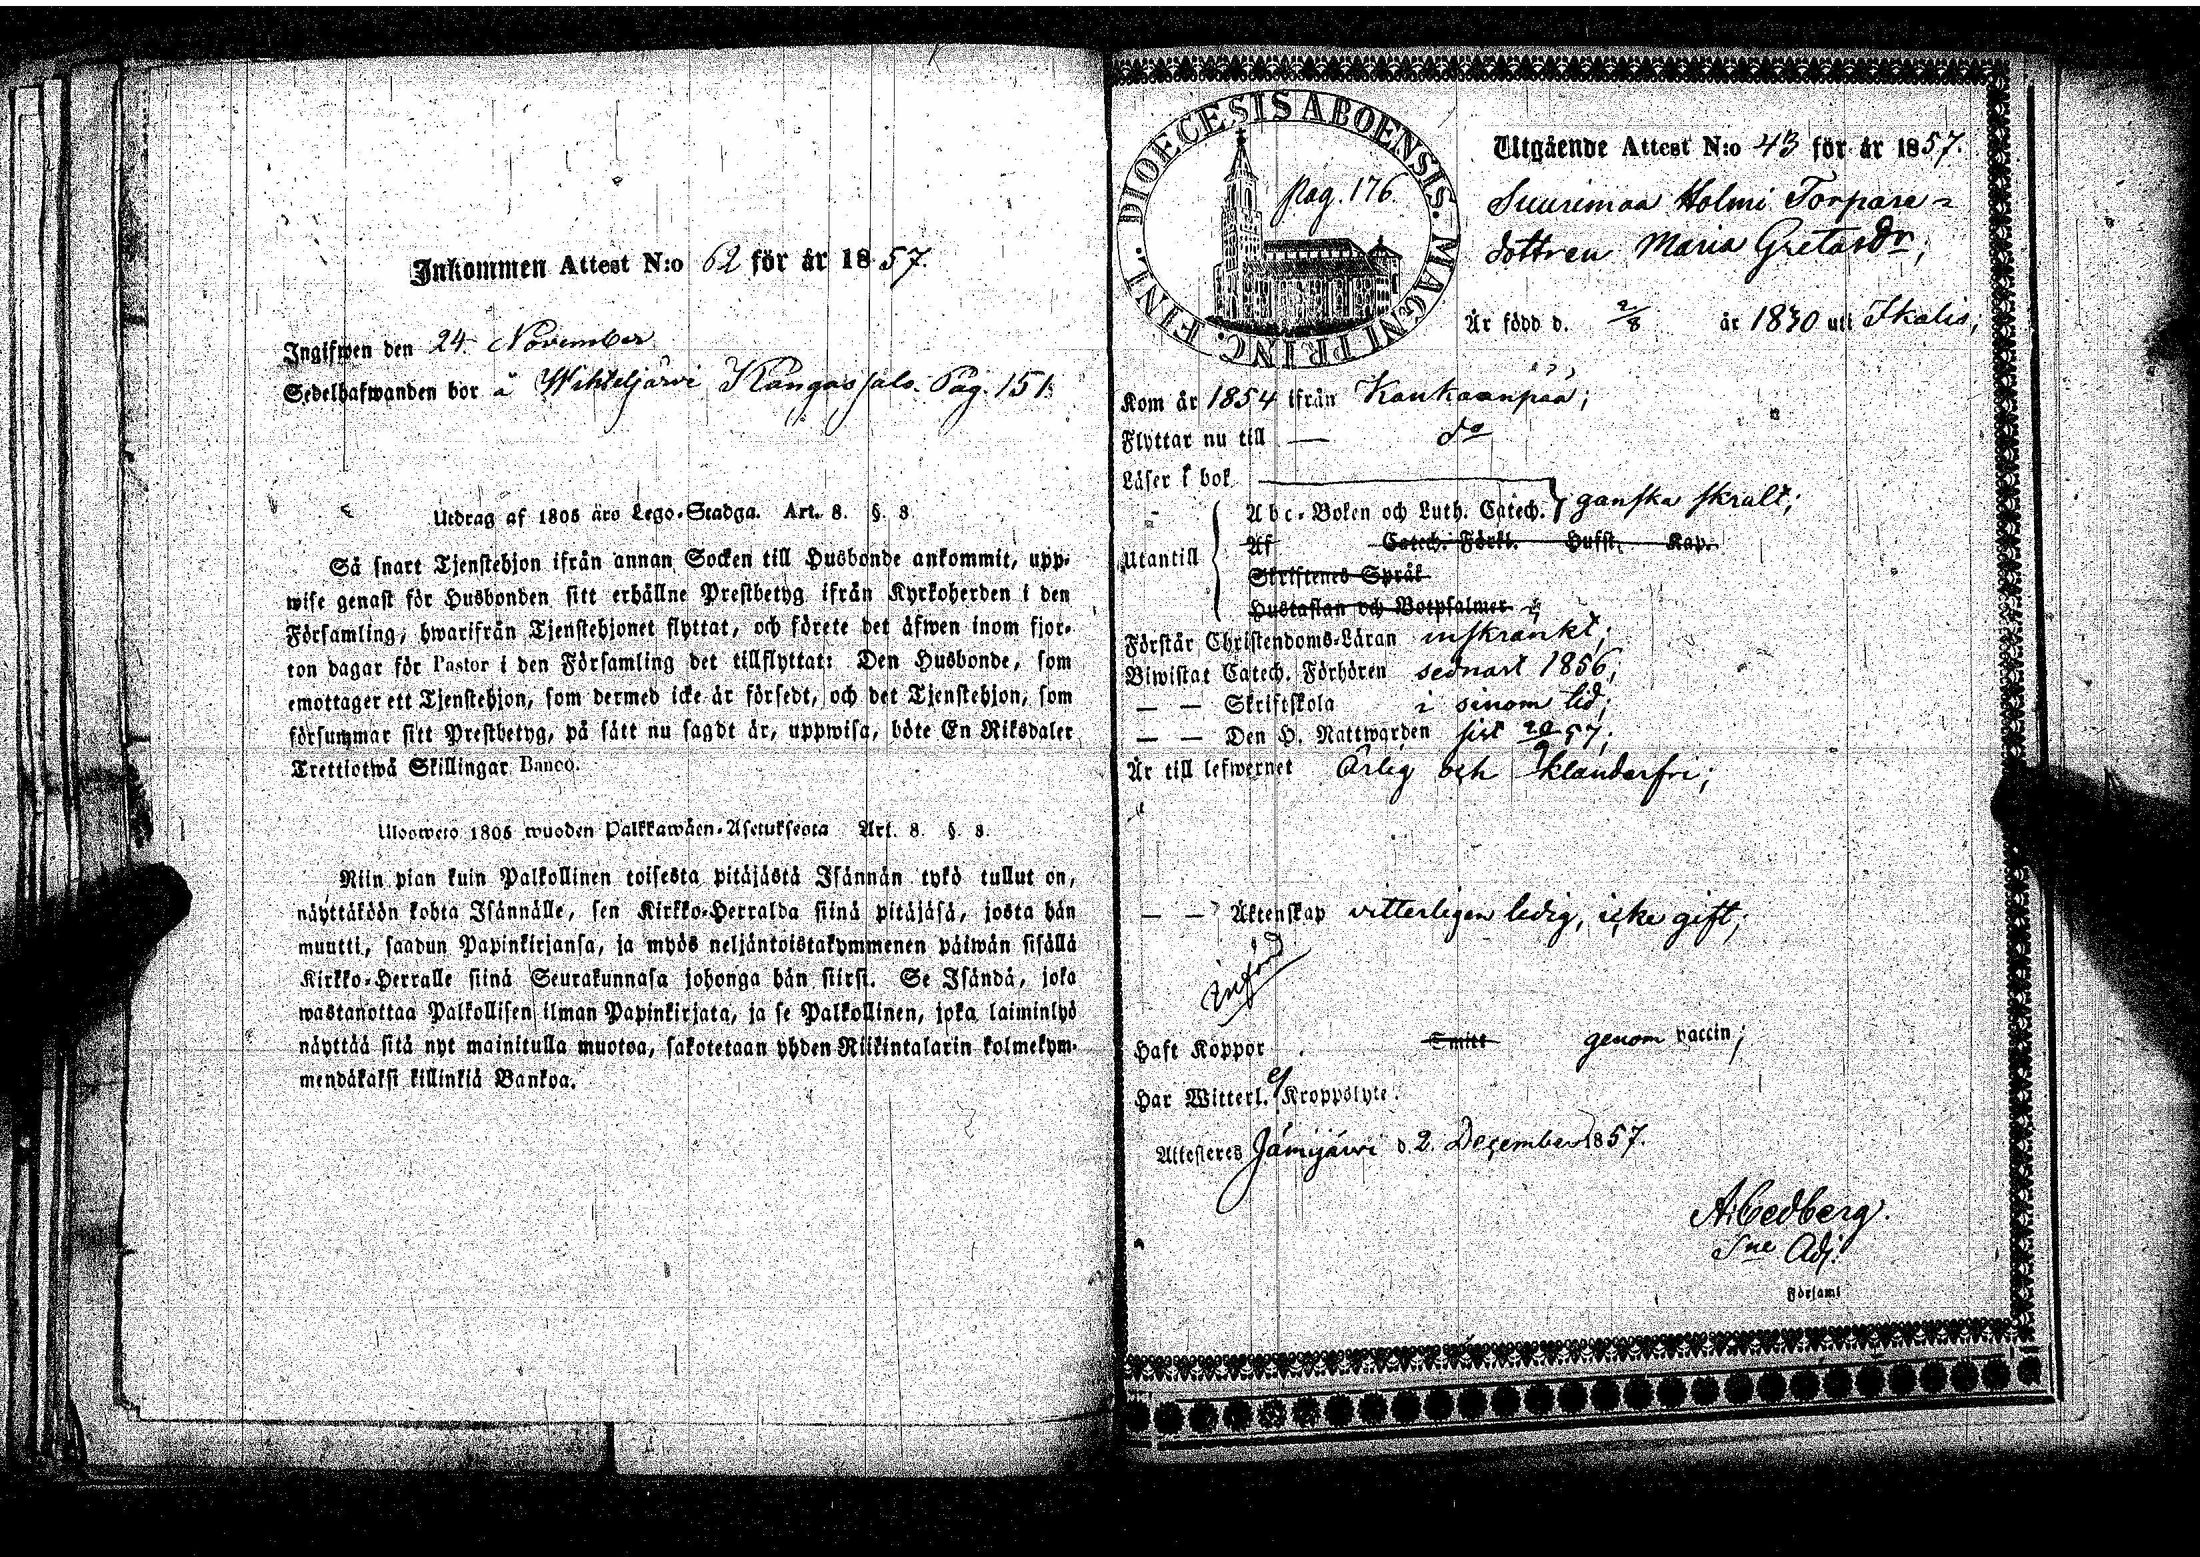 Inkommen Attest N:o 62 för år 1857.
Ingifwen den 24 November
Sedelhafwanden bor å Wihteljärvi Kangas Pag. 151.
Utdrag af 1805 års Lego-Stadga. Art. 8. §. 8.
Så snart Tjenstehjon ifrån annan Socken till Husbonde ankommit, upp-
wise genast för Husbonden sitt erhållne Prestbetyg ifrån Kyrkoherden i den
Församling, hwarifrån Tjenstehjonet flyttat, och förete det äfwen inom fjor-
ton dagar för Pastor i den Församling det tillflyttat: Den Husbonde, som
emottager ett Tjenstehjon, som dermed icke är försedt, och det Tjenstehjon, som
försummar sitt Prestbetyg, på sätt nu sagdt är, uppwisa, böte En Riksdaler
Trettiotwå Skillingar Banco.
Uloswето 1805 wuoden Palkkawäen-Asetuksesta Art. 8. §. 8.
Niin pian kuin Palkollinen toisesta pitäjästä Isännän tykö tullut on,
näyttäköön kohta Isännälle, sen Kirkko-Herralda siinä pitäjäsä, josta hän
muutti, saadun Papinkirjansa, ja myös neljäntoistakymmenen päiwän sisällä
Kirkko-Herralle siinä Seurakunnasa johonga hän siirsi. Se Isändä, joka
wastanottaa Palkollisen ilman Papinkirjata, ja se Palkollinen, joka laiminlyö
näyttää sitä nyt mainitulla muotoa, sakotetaan yhden Riikintalarin kolmekym-
mendäkaksi killinkiä Bankoa.
DIOECESIS ABOENSIS MAGNI PRINC. FINL.
Pag. 176
Utgående Attest N:o 43 för år 1857.
Suurimaa Holmi Torpare-
dottren Maria Gretasdr,
Är född d. 2/8 år 1830 uti Ikalis;
Kom år 1854 ifrån Kankaanpää;
Flyttar nu till — do
Läser i bok
Abc-Boken och Luth. Catech. ganska skralt;
Utantill
Af Catech. Förkl. Husst. Kap.
Skriftenes Språk
Hustaflan och Botpsalmer
Förstår Christendoms-Läran inskränkt;
Biwistat Catech. Förhören sednast 1856,
— — Skriftskola i sinom tid;
— — Den H. Nattwarden sist 20/9 57;
Är till lefwernet Ärlig och klanderfri;
— — Äktenskap vitterligen ledig, icke gift;
införd
Haft Koppor Smitt genom vaccin;
Har Witterl. ej Kroppslyte.
Attesteres Jämijärvi d. 2. December 1857.
A. Cedberg.
Sne Adj.
Församl